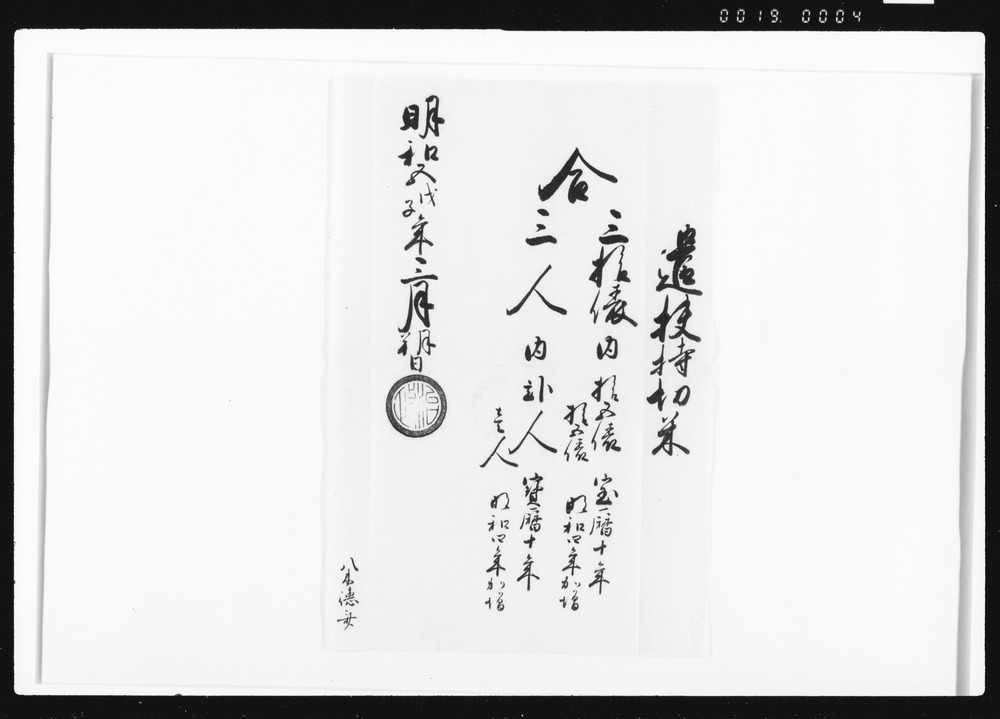 0019. 0004
遣扶持切米
合
三拾俵内
拾五俵 宝暦十年
拾五俵 明和四年加増
三人内
弐人 寳暦十年
壱人 明和四年加増
明和五戊子年三月朔日
八木德